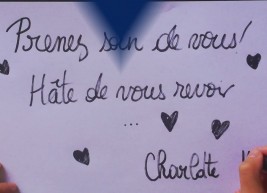 Prenez soin de vous!
Hâte de vous revoir
...
Charlotte